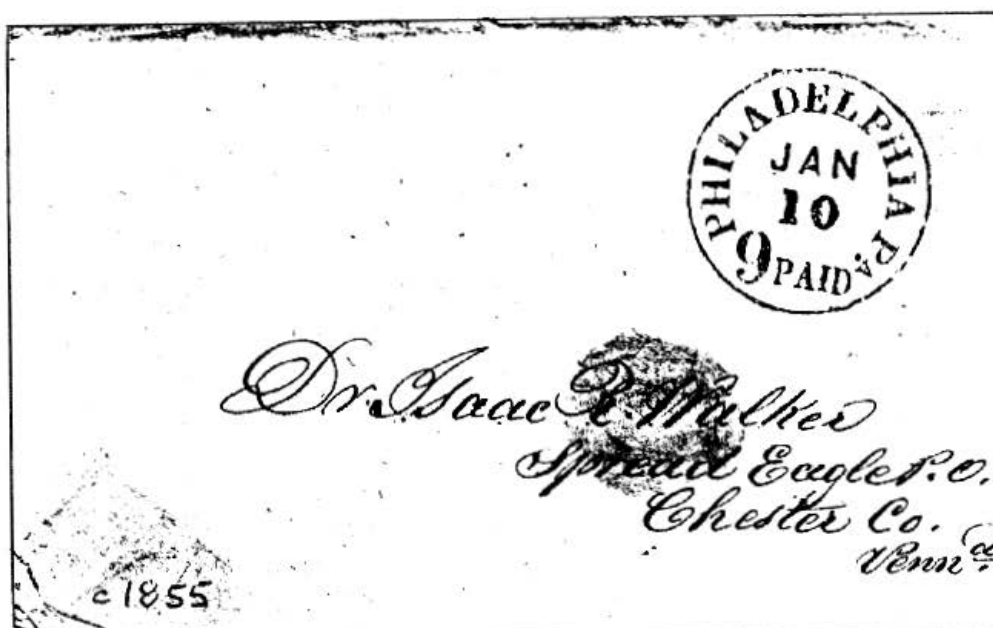 PHILADELPHIA Pa.
JAN
10
9 PAID
Dr. Isaac R. Walker
Spread Eagle P.O.
Chester Co.
Penn.a
c 1855